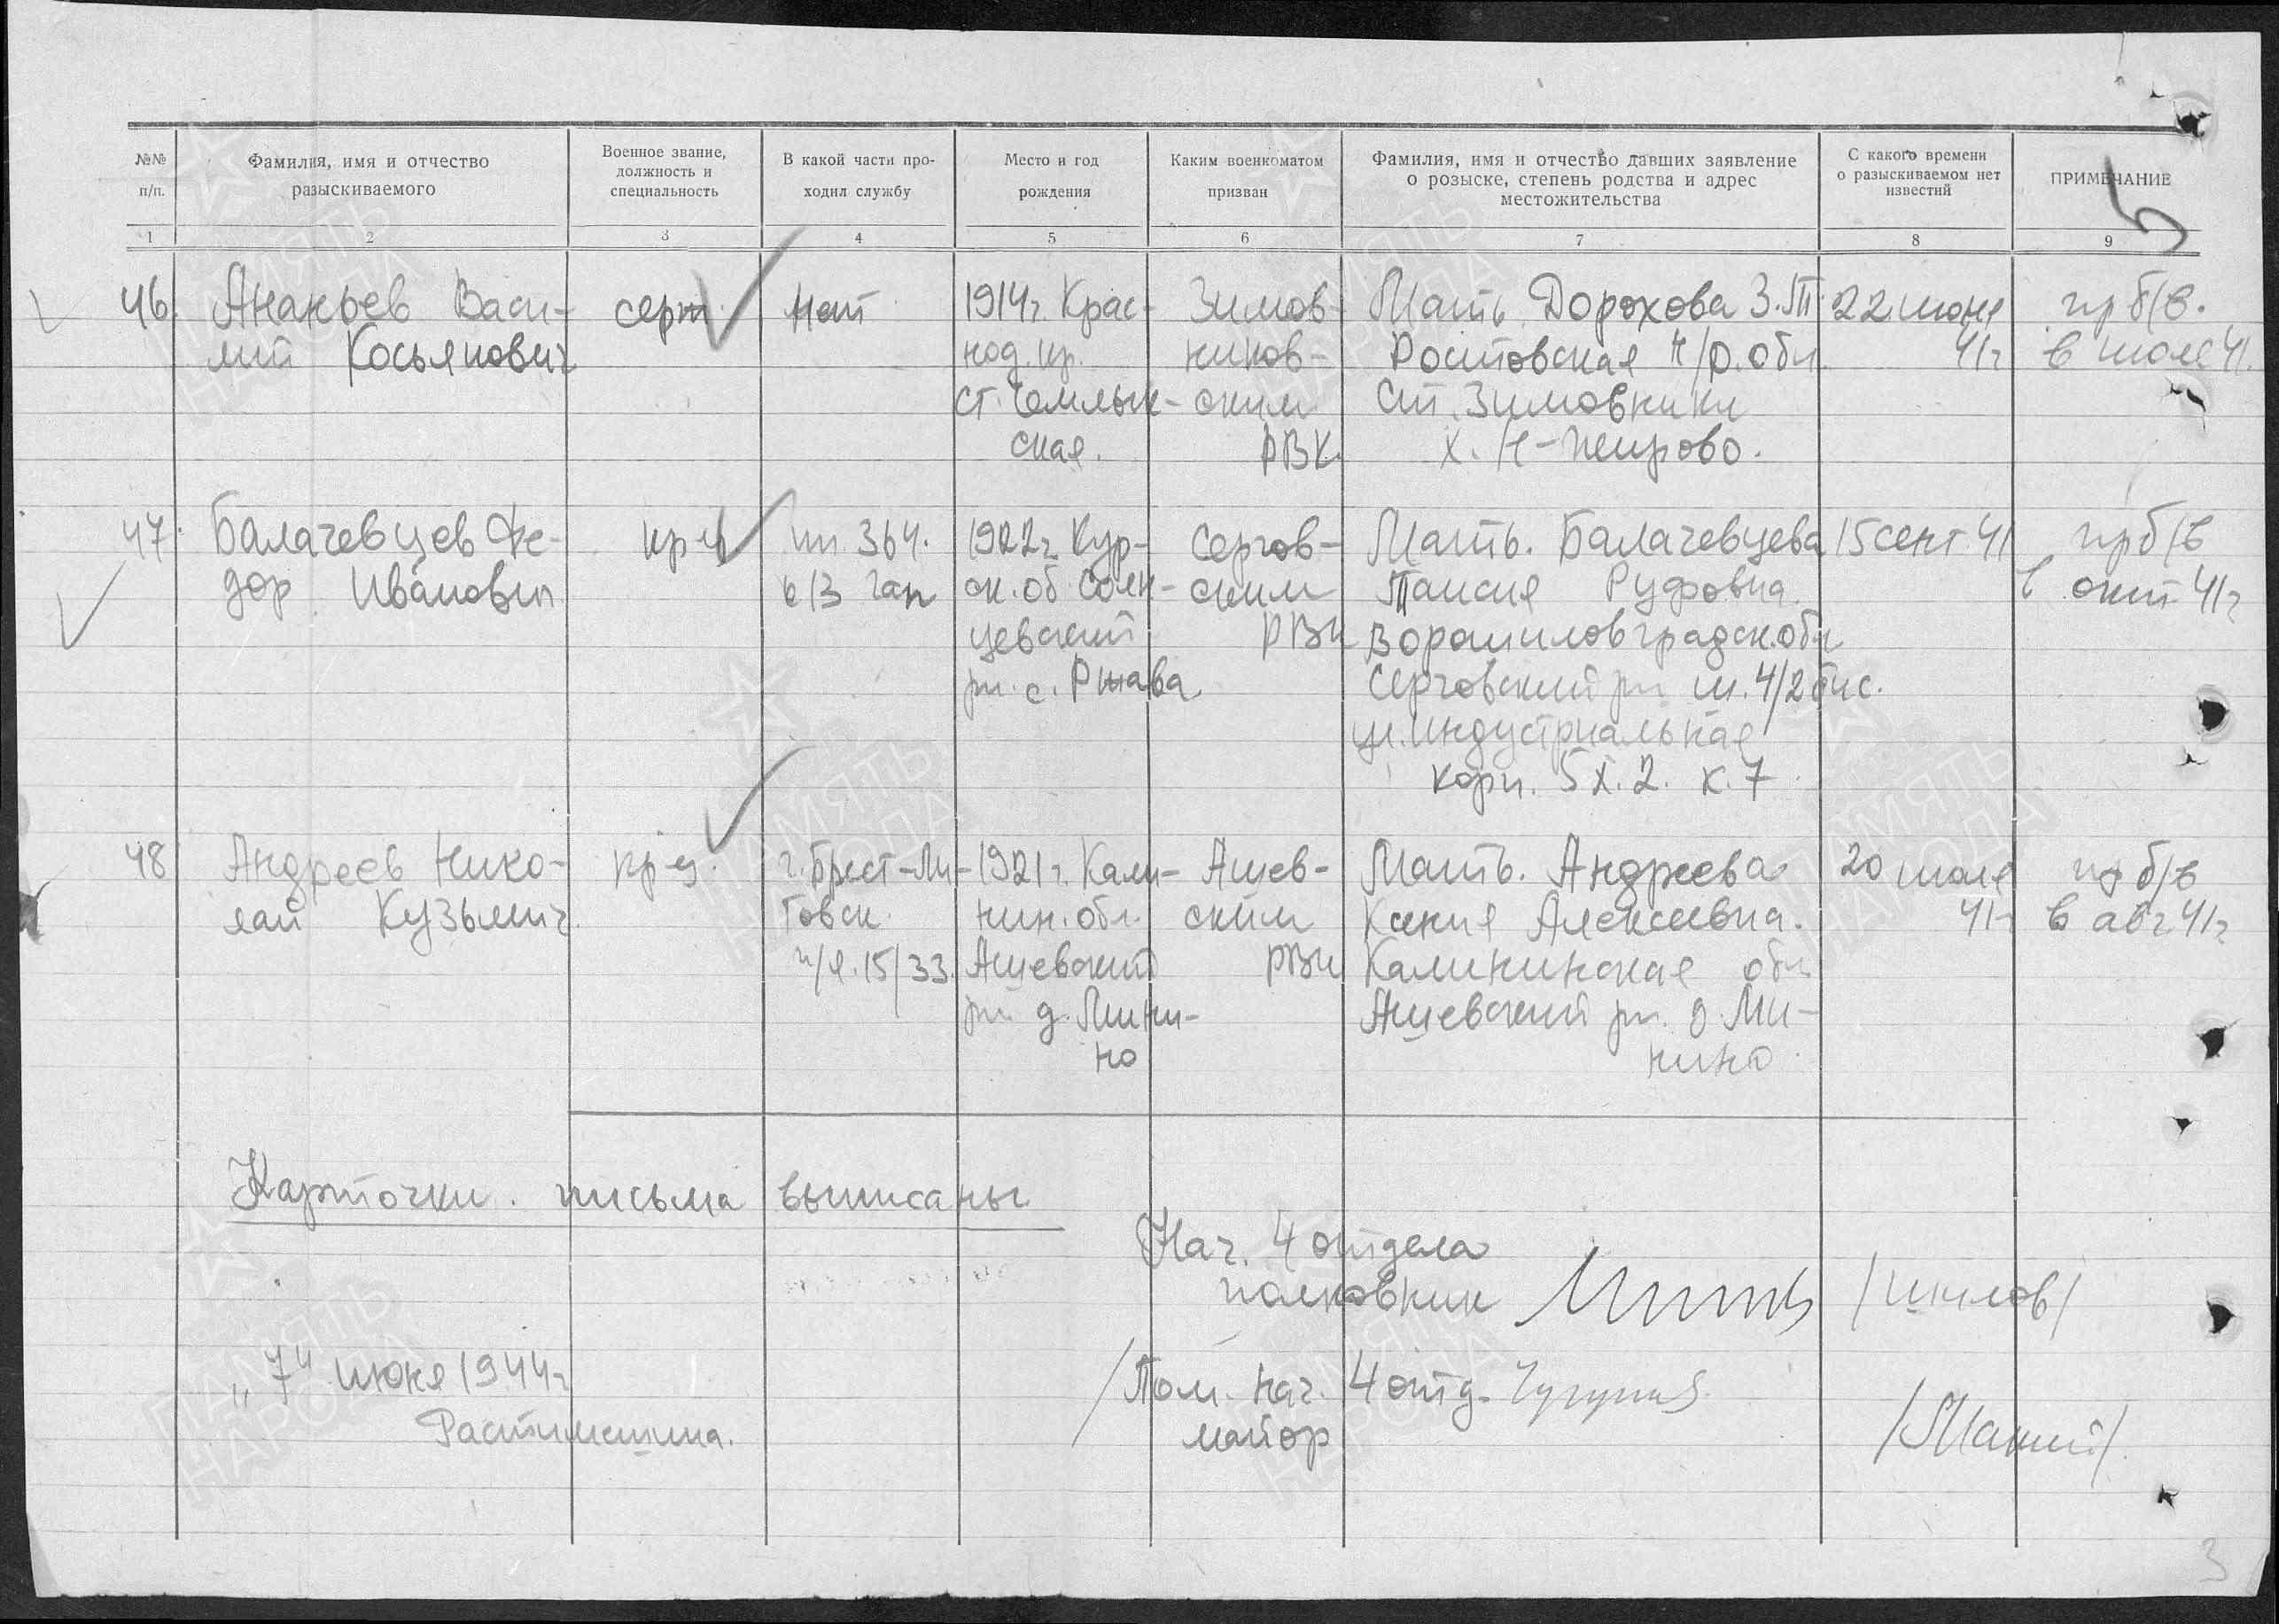 №№ п/п.
Фамилия, имя и отчество разыскиваемого
Военное звание, должность и специальность
В какой части проходил службу
Место и год рождения
Каким военкоматом призван
Фамилия, имя и отчество давших заявление о розыске, степень родства и адрес местожительства
С какого времени о разыскиваемом нет известий
ПРИМЕЧАНИЕ
1 2 3 4 5 6 7 8 9
46. Ананьев Васи-
лий Косьянович
серж.
нет
1914 г. Крас-
нод. кр.
ст. Чамлык-
ская.
Зимов-
ников-
ским
РВК
Мать Дорохова З.Т.
Ростовская н/Д. обл.
ст. Зимовники
х. Н-Петрово.
22 июня
41 г
пр б/в.
в июле 41.
47. Балачевцев Фе-
дор Иванович
кр-ц
пп 364.
6/3 гап
1922 г. Кур-
ск. об. Солн-
цевский
рн. с. Ржава
Сергов-
ским
РВК
Мать. Балачевцева
Таисия Руфовна.
Ворошиловградск. обл
Серговский рн ш. 4/2 бис.
ул. Индустриальная
корп. 5 х. 2. к. 7
15 сент 41
пр б/в
в окт 41 г
48 Андреев Нико-
лай Кузьмич
кр-ц.
г. Брест-Ли-
товск.
п/я. 15/33.
1921 г. Кали-
нин. обл.
Ашевский
рн д. Мини-
но
Ашев-
ским
РВК
Мать. Андреева
Ксения Алексеевна.
Калининская обл
Ашевский рн. д Ми-
нино.
20 июля
41 г
пр б/в
в авг 41 г
Карточки. письма выписаны
Нач. 4 отдела
полковник /Шилов/
Пом. нач. 4 отд.
майор
„7“ июня 1944 г
ПАМЯТЬ НАРОДА
3